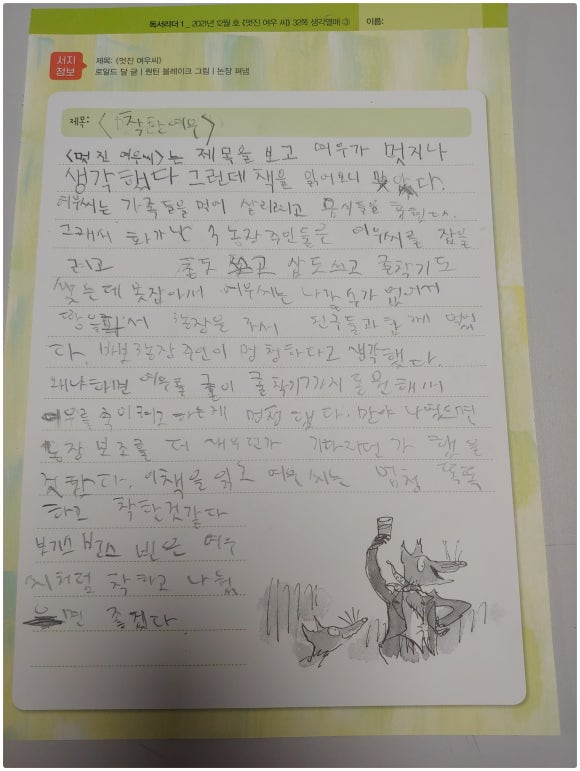 독서리더 1 _ 2021년 12월 호 <멋진 여우 씨> 32쪽 생각열매 ③ 이름:
서지
정보
제목: <멋진 여우씨>
로알드 달 글 | 퀀틴 블레이크 그림 | 논장 펴냄
제목: <착한여우>
<멋진 여우씨>는 제목을 보고 여우가 멋지나
생각했다 그런데 책을 읽어보니 맞았다.
여우씨는 가족들을 먹여 살리려고 음식들을 훔쳤다.
그래서 화가난 농장주인들은 여우씨를 잡을
려고 총도 쏘고 삽도쓰고 굴착기도
썼는데 못잡아서 여우씨는 나갈수가 없어서
땅을파서 농장을 가서 친구들과 함께 먹었
다. 바보 농장주인이 멍청하다고 생각했다.
왜냐하면 여우를 굴착기까지 동원해서
여우를 죽이려고 하는게 멍청했다. 만약 나였으면
농장 보조를 더 세우던가 했을
것같다. 이책을 읽고 여우씨는 엄청 똑똑
하고 착한것같다
보기스 번스 빈은 여우
씨처럼 착하고 나눴
으면 좋겠다.